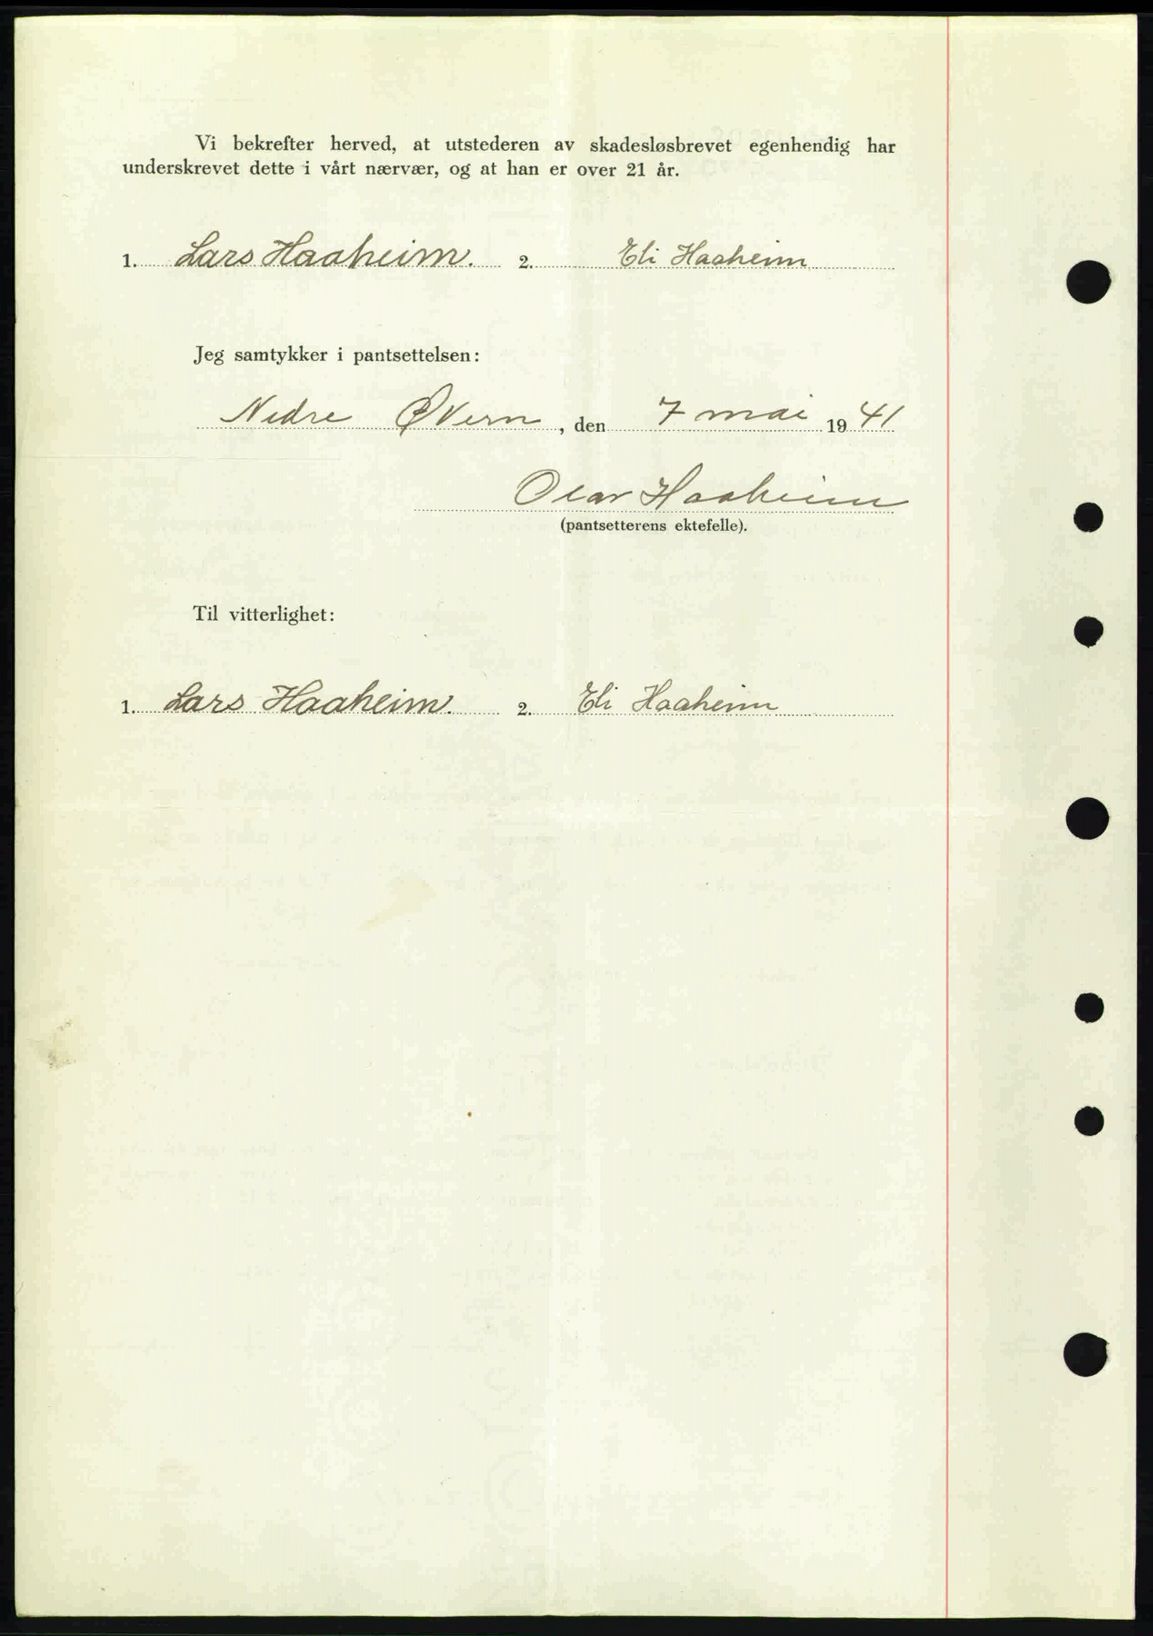 Vi bekrefter herved, at utstederen av skadesløsbrevet egenhendig har
underskrevet dette i vårt nærvær, og at han er over 21 år.
1. Lars Haaheim. 2. Eli Haaheim
Jeg samtykker i pantsettelsen:
Nedre Øvern, den 7 mai 1941
Haaheim
(pantsetterens ektefelle).
Til vitterlighet:
1. Lars Haaheim. 2. Eli Haaheim